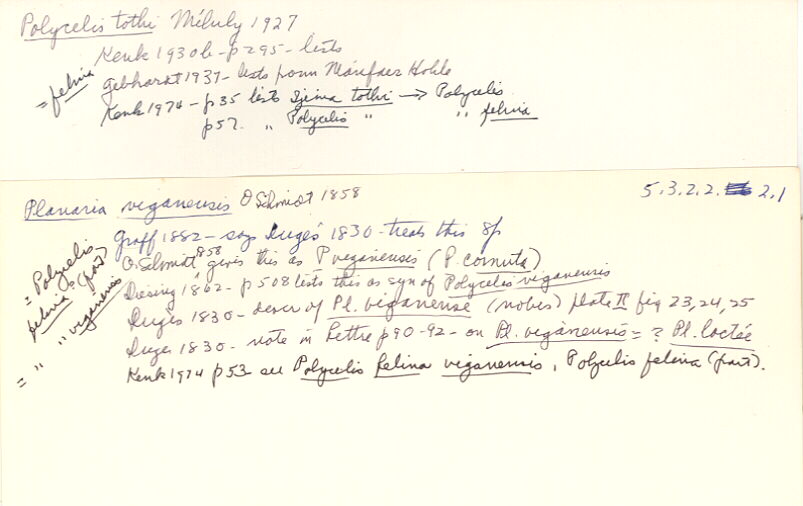 Polycelis tothi Méhely 1927
Kenk 1930b - p295 - lists
= felina
Gebhardt 1937 - lists from Mánfaer Hohle
Kenk 1974 - p35 lists Sjema tothi → Polycelis
p57. " Polycelis " " felina
Planaria viganensis O Schmidt 1858
5.3.2.2. 2.1
Graff 1882 - says Dugés 1830 - treats this sp
O. Schmidt 1858 gives this as P viganensis (P. cornuta)
Diesing 1862 - p508 lists this as syn of Polycelis viganensis
Dugès 1830 - descr of Pl. viganense (nobis) plate II fig 23, 24, 25
Duges 1830 - note in Lettre p90-92 - on Pl. viganensis = ? Pl. lactée
Kenk 1974 p53 - see Polycelis felina viganensis, Polycelis felina (part).
= Polycelis
felina (part)
= " " viganensis